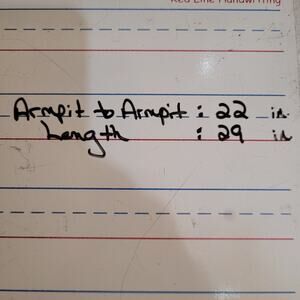 Red Line Handwriting
Armpit to Armpit : 22 in
Length : 29 in